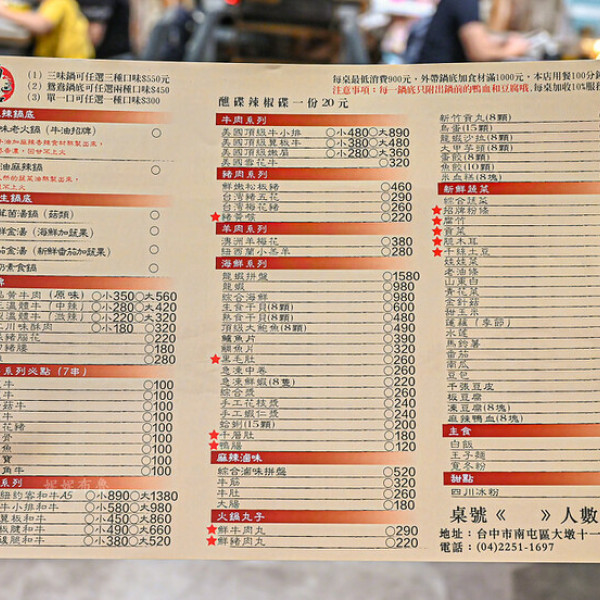 (1) 三味鍋可任選三種口味$550元
(2) 鴛鴦鍋底可任選兩種口味$450
(3) 單一口可任選一種口味$300
每桌最低消費900元，外帶鍋底加食材滿1000元，本店用餐100分鐘
注意事項：每一鍋底只附出鍋前的鴨血和豆腐哦,每桌加收10%服務
醮碟辣椒碟一份20元
辣鍋底
味老火鍋（牛油招牌）
油麻辣鍋
生鍋底
菌湯鍋（菇類）
鮮金湯（海鮮加蔬果）
茄金湯（新鮮番茄加蔬果）
素食鍋
骨牛肉（原味）○小350○大560
溫體牛（中辣）○小280○大420
溫體牛（激辣）○小220○大320
川味酥肉 ○小180○ 320
豬腦花 ○220
腰 ○180
○280
系列必點（7串）
牛 ○100
牛 ○100
菇牛 ○100
牛 ○100
牛 ○100
骨 ○100
魚 ○100
寶 ○100
角牛 ○100
系列
紐約客和牛A5 ○小890○大1380
小排和牛 ○小580○大980
翼板和牛 ○小510○大860
板腱和牛 ○小490○大660
腹和牛 ○小450○大520
牛肉系列
美國頂級牛小排 ○小480○大890
美國頂級翼板牛 ○小380○大480
美國頂級嫩肩 ○小280○大360
美國雪花牛 ○320
豬肉系列
鮮嫩松板豬 ○460
台灣豬五花 ○290
台灣梅花豬 ○260
★豬黃喉 ○220
羊肉系列
澳洲羊梅花 ○380
紐西蘭小羔羊 ○280
海鮮系列
龍蝦拼盤 ○1580
龍蝦 ○980
綜合海鮮 ○980
生食干貝(8顆) ○600
熟食干貝(8顆) ○480
頂級大鮑魚(8顆) ○490
鱸魚片 ○390
鯛魚片 ○320
★黑毛肚 ○260
急凍中卷 ○260
急凍鮮蝦(8隻) ○220
綜合漿 ○260
手工花枝漿 ○240
手工蝦仁漿 ○240
蛤蜊(15顆) ○200
★千層肚 ○180
★鴨腸 ○120
麻辣滷味
綜合滷味拼盤 ○520
牛筋 ○320
牛肚 ○260
大腸 ○180
火鍋丸子
★鮮牛肉丸 ○290
★鮮豬肉丸 ○220
新竹貢丸(8顆)
鳥蛋(15顆)
龍蝦沙拉(8顆)
大甲芋頭(8顆)
蛋餃(8顆)
魚餃(10顆)
米血糕(8塊)
新鮮蔬菜
綜合蔬菜
★招牌粉條
★腐竹
★貢菜
★脆木耳
★干絲土豆
娃娃菜
老油條
山東白
青花菜
金針菇
甜玉米
蓮藕（季節）
水蓮
馬鈴薯
番茄
南瓜
豆包
千張豆皮
板豆腐
凍豆腐(8塊)
麻辣鴨血(8塊)
主食
白飯
王子麵
寬冬粉
甜點
四川冰粉
桌號《　　》人數
地址：台中市南屯區大墩十一
電話：(04)2251-1697